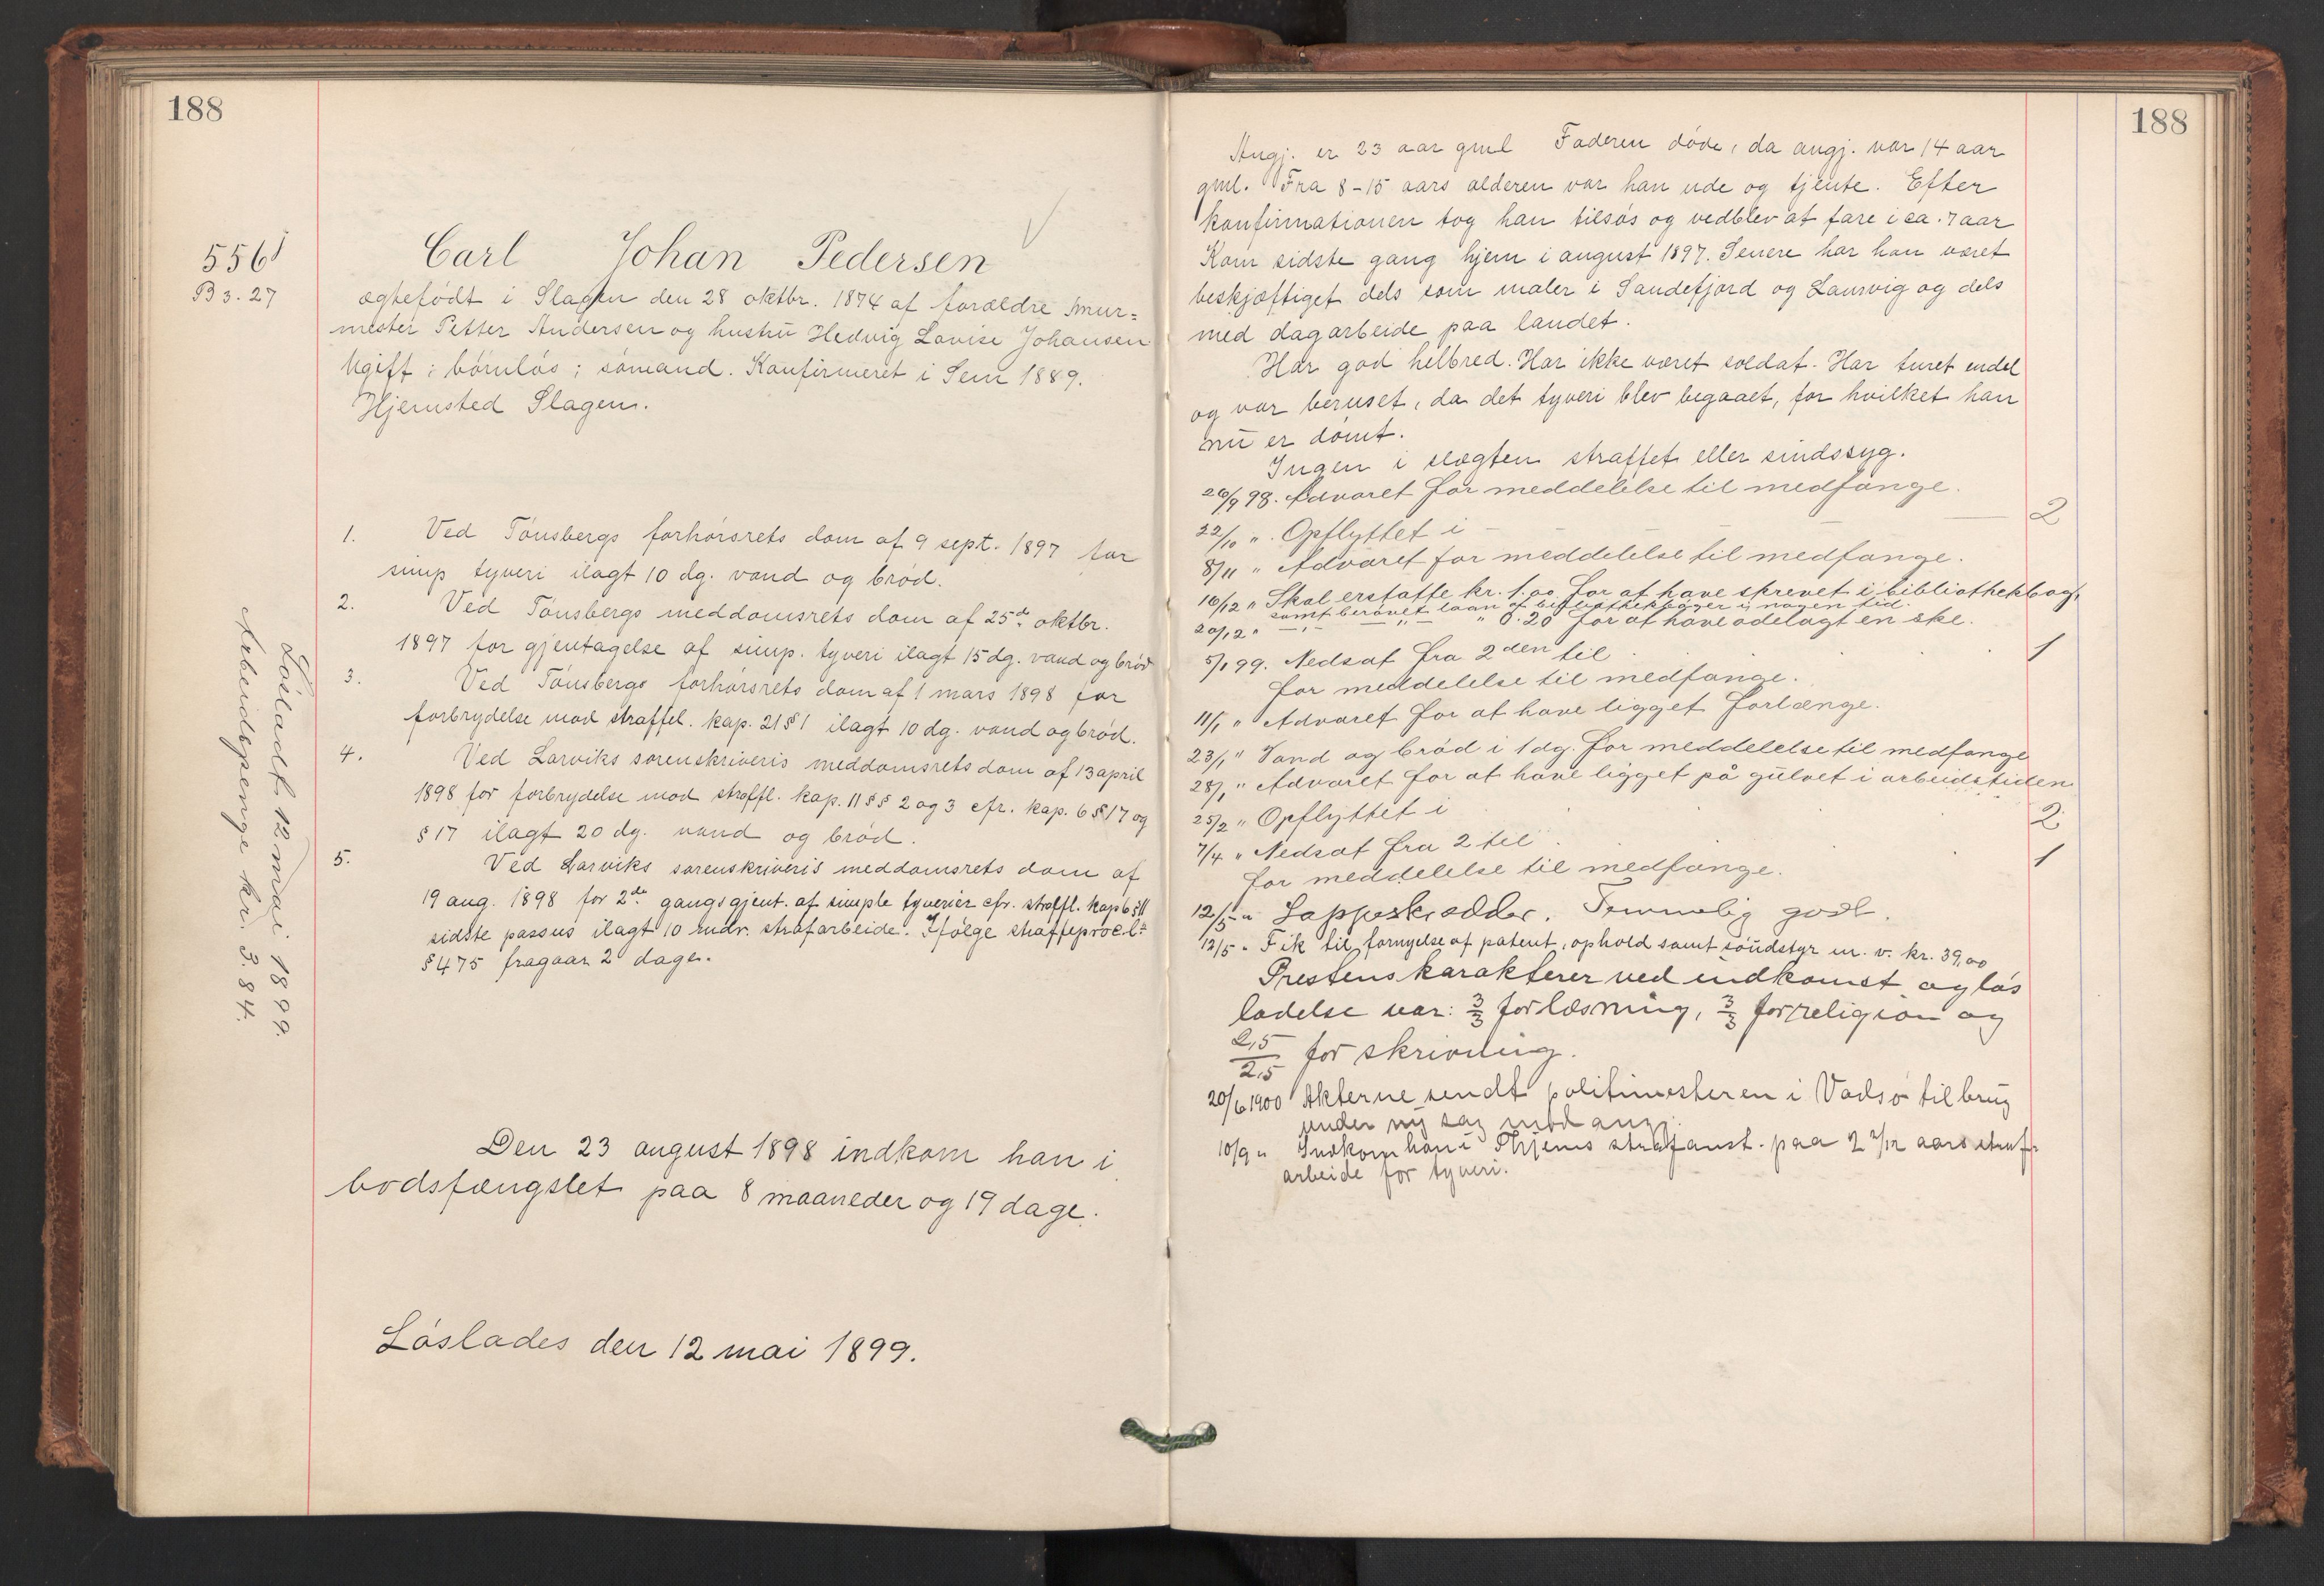 188
556
B 3. 27
Carl Johan Pedersen
ægtefødt i Slagen den 28 oktbr. 1874 af forældre mur=
mester Petter Andersen og hustru Hedvig Lovise Johansen
Ugift; børnløs; sømand. Konfirmeret i Sem 1889.
Hjemsted Slagen.
1. Ved Tønsbergs forhørsrets dom af 9 sept. 1897 for
simp tyveri ilagt 10 dg. vand og brød.
2. Ved Tønsbergs meddomsrets dom af 25de oktbr.
1897 for gjentagelse af simp. tyveri ilagt 15 dg. vand og brød
3. Ved Tønsbergs forhørsrets dom af 1 mars 1898 for
forbrydelse mod straffel. kap. 21 § 1 ilagt 10 dg. vand og brød.
4. Ved Larviks sorenskriveris meddomsrets dom af 13 april
1898 for forbrydelse mod straffl. kap. 11 §§ 2 og 3 cfr. kap. 6 § 17 og
§ 17 ilagt 20 dg. vand og brød.
5. Ved Larviks sorenskriveris meddomsrets dom af
19 aug. 1898 for 2de gangs gjent. af simple tyverier cfr. straffl. kap 6 § 11
sidste passus ilagt 10 mdr. strafarbeide. Ifølge straffeprocl.
§ 475 fragaar 2 dage.
Løsladt 12 mai 1899.
Arbeidspenge kr. 3.84.
Den 23 august 1898 indkom han i
bodsfængslet paa 8 maaneder og 19 dage.
Løslades den 12 mai 1899.
188
Angj. er 23 aar gml Faderen døde, da angj. var 14 aar
gml. Fra 8-15 aars alderen var han ude og tjente. Efter
konfirmationen tog han tilsøs og vedblev at fare i ca. 7 aar
Kom sidste gang hjem i august 1897. Senere har han været
beskjæftiget dels som maler i Sandefjord og Laurvig og dels
med dagarbeide paa landet.
Har god helbred. Har ikke været soldat. Har turet endel
og var beruset, da det tyveri blev begaaet, for hvilket han
nu er dømt.
Ingen i slægten straffet eller sindssyg.
26/9 98. Advaret for meddelelse til medfange.
22/10 " Opflyttet i - - - - 2
8/11 " Advaret for meddelelse til medfange.
16/12 " Skal erstatte kr. 1.00 for at have skrevet i bibliothekbog,
samt berøvet laan af bibliothekbøger i nogen tid.
20/12 " - " - - " - " 0.20 for at have ødelagt en ske.
5/1 99. Nedsat fra 2den til 1
for meddelelse til medfange.
11/1 " Advaret for at have ligget forlænge.
23/1 " Vand og brød i 1 dg. for meddelelse til medfange
28/1 " Advaret for at have ligget på gulvet i arbeidstiden
25/2 " Opflyttet i 2
7/4 " Nedsat fra 2 til 1
for meddelelse til medfange.
12/5 " Lappeskrædder. Temmelig godt.
12/5 " Fik til fornyelse af patent, ophold samt søudstyr m. v. kr. 39,00
Prestens karakterer ved indkomst og løs
ladelse var: 3/3 for læsning, 3/3 for religion og
2,5/2,5 for skrivning.
20/6 1900 Akterne sendt politimesteren i Vadsø til brug
under ny sag mod angj.
10/9 " Indkom han i Thjems strafanst. paa 2 2/12 aars straf=
arbeide for tyveri.